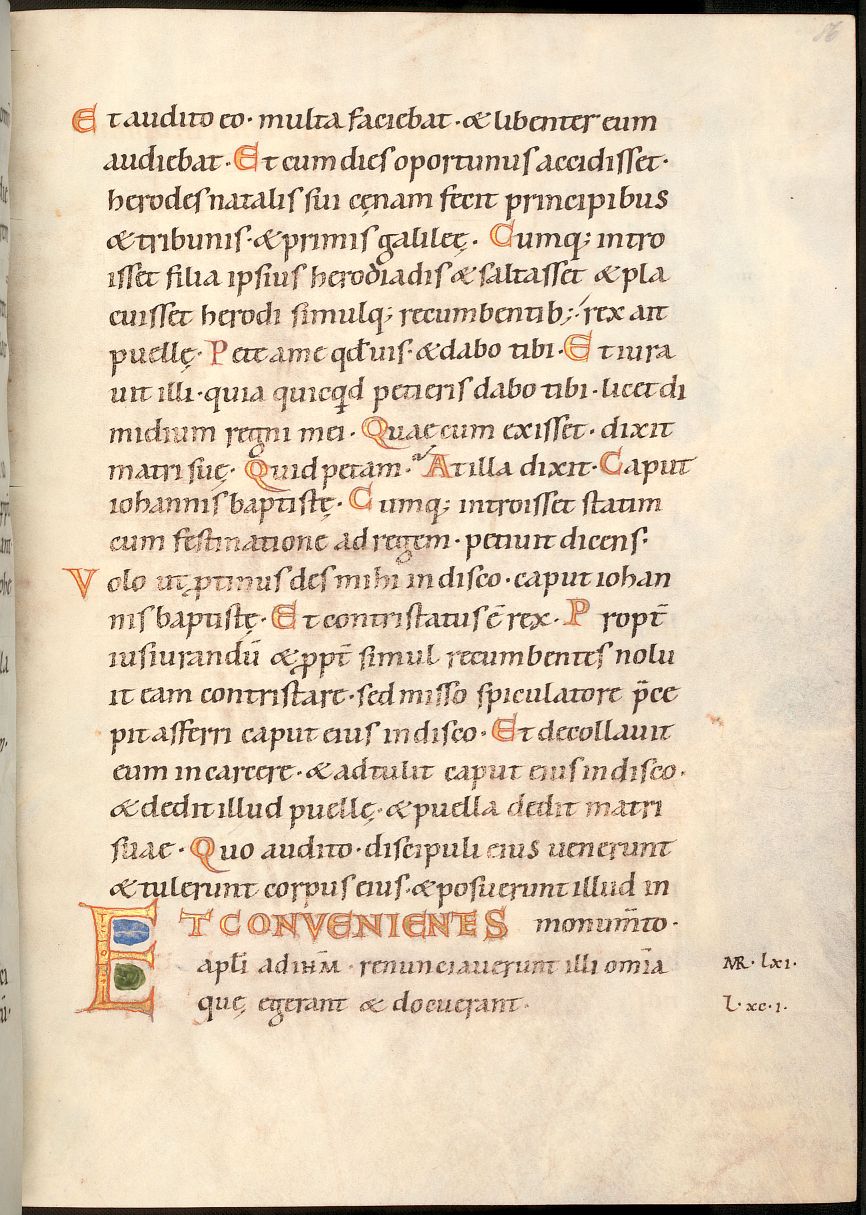 86
Et audito eo · multa faciebat · & libenter eum
audiebat · Et cum dies oportunus accidisset ·
herodes natalis sui cęnam fecit principibus
& tribunis · & primis galileę · Cumq; intro
isset filia ipsius herodiadis & saltasset & pla
cuisset herodi simulq; recumbentib; · rex ait
puellę · Pete a me qđ uis · & dabo tibi · Et iura
uit illi · quia quicqd petieris dabo tibi · licet di
midium regni mei · Quae cum exisset · dixit
matri suę · Quid petam · At illa dixit · Caput
iohannis baptistę · Cumq; introisset statim
cum festinatione ad regem · petiuit dicens:
Volo ut ꝓtinus des mihi in disco · caput iohan
nis baptistę · Et contristatus ē rex · Propt̄
iusiurandū & ꝓpt̄ simul recumbentes nolu
it eam contristare · sed misso spiculatore p̄ce
pit afferri caput eius in disco · Et decollauit
eum in carcere · & adtulit caput eius in disco ·
& dedit illud puellę · & puella dedit matri
suae · Quo audito · discipuli eius uenerunt
& tulerunt corpus eius · & posuerunt illud in
ET CONVENIENTES monum̄to ·
apl̄i ad ihm̄ · renunciauerunt illi om̄ia
quę egerant & docuerant ·
MR · lxi ·
L · xc · i ·